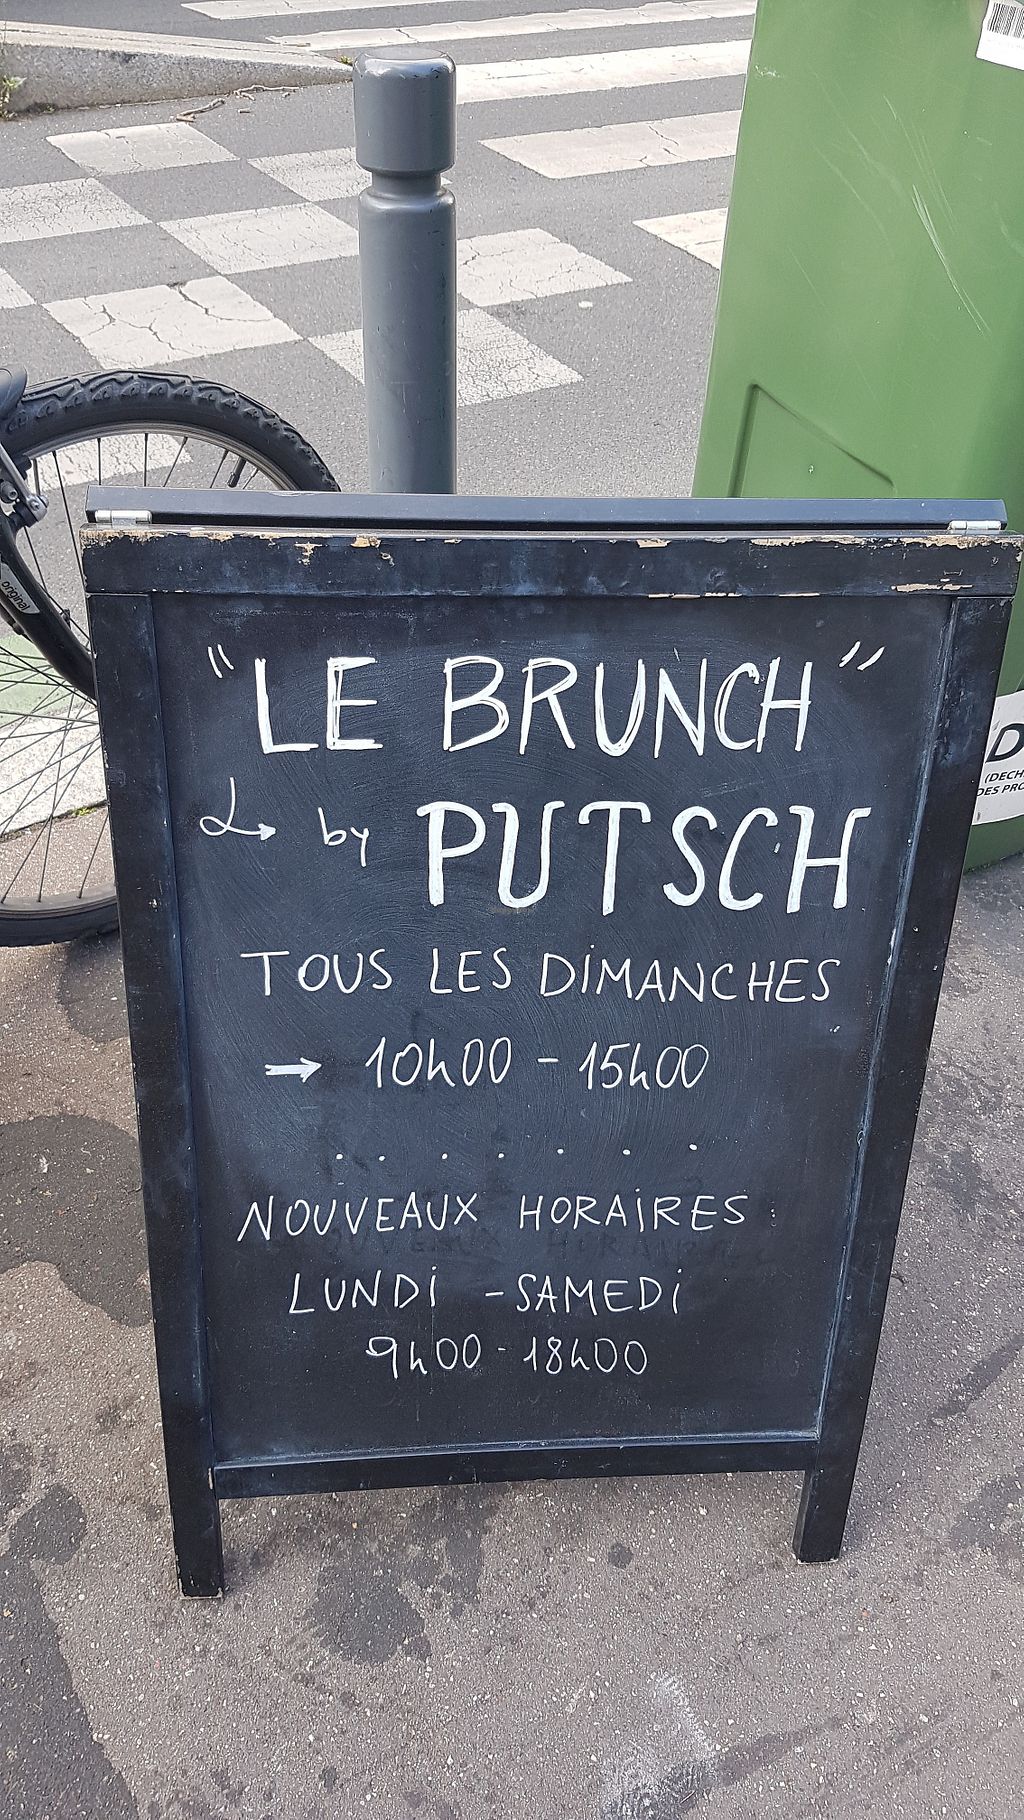 "LE BRUNCH"
by PUTSCH
TOUS LES DIMANCHES
→ 10h00 - 15h00
.......
NOUVEAUX HORAIRES :
LUNDI - SAMEDI
9h00 - 18h00
original
(DECH
DES PRO